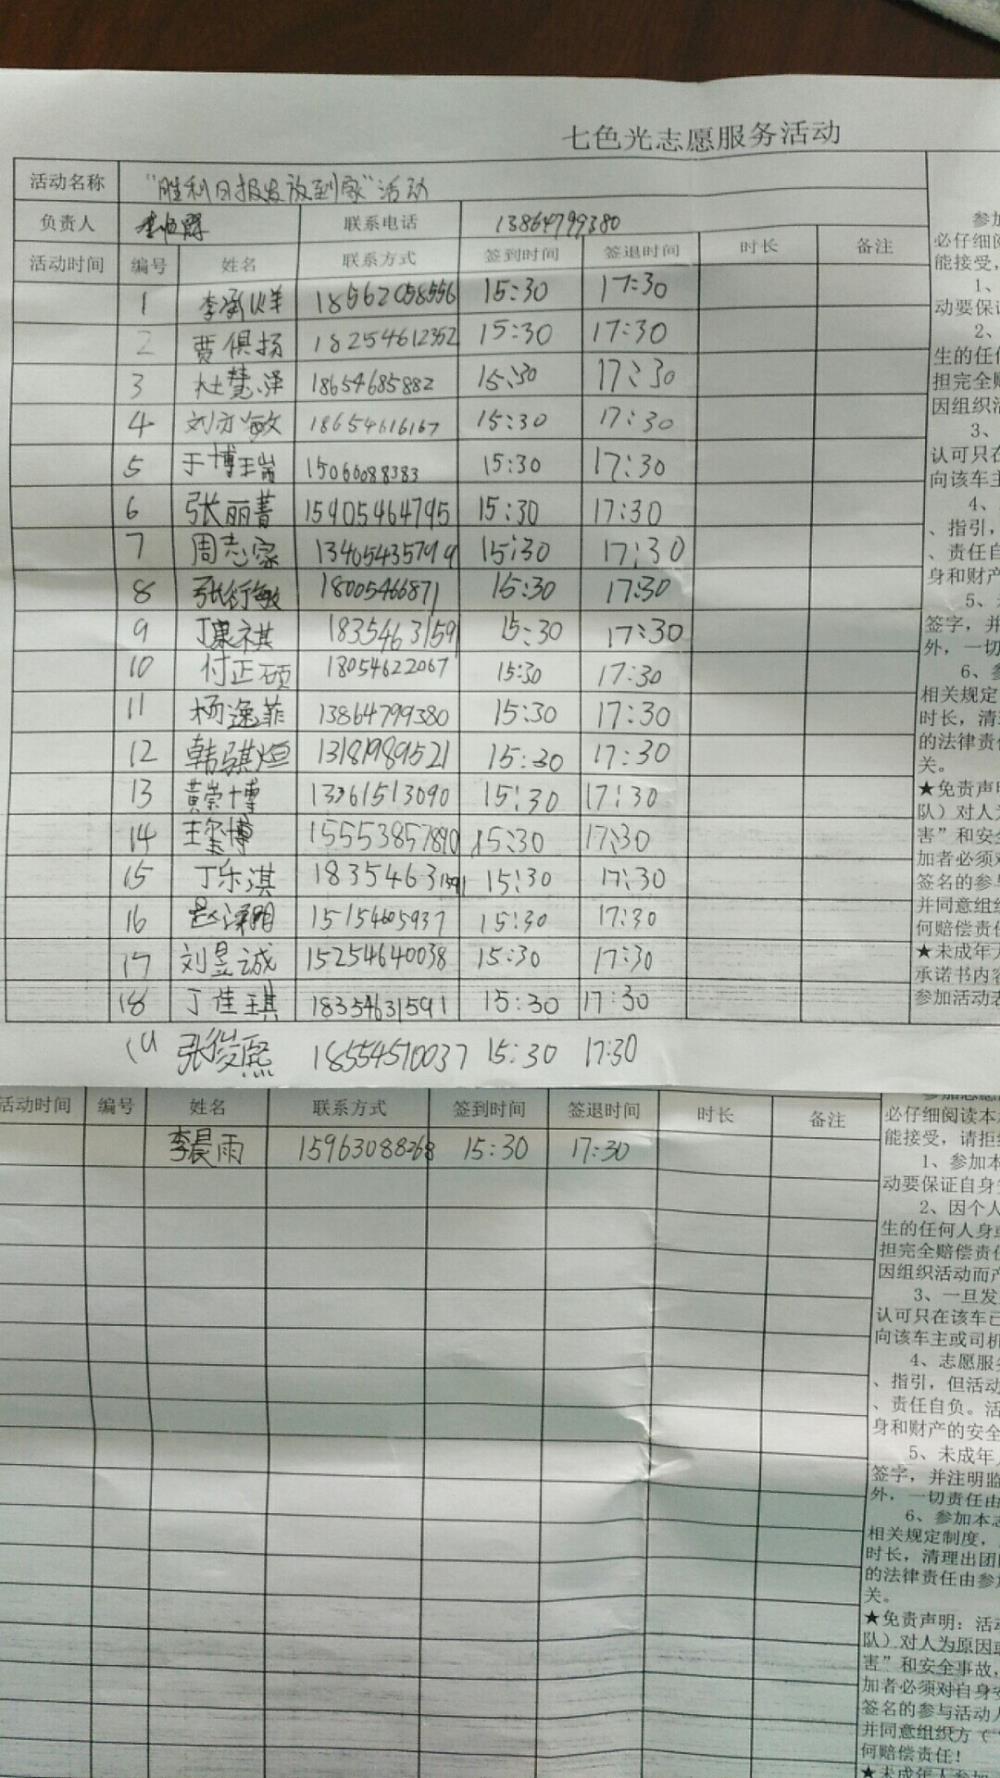 七色光志愿服务活动
活动名称 "胜利日报发放到家"活动
负责人 联系电话 13864799380
活动时间 编号 姓名 联系方式 签到时间 签退时间 时长 备注
1 李承烊 18562058556 15:30 17:30
2 贾俱扬 18254612352 15:30 17:30
3 杜慧泽 18654685882 15:30 17:30
4 刘亦敏 18654616167 15:30 17:30
5 于博瑞 15066088383 15:30 17:30
6 张丽菁 15905464795 15:30 17:30
7 周志家 13405435799 15:30 17:30
8 张衍敏 18005466871 15:30 17:30
9 丁康祺 18354631591 15:30 17:30
10 付正硕 18054622067 15:30 17:30
11 杨逸菲 13864799380 15:30 17:30
12 韩骐烜 13181989521 15:30 17:30
13 黄崇博 13361513090 15:30 17:30
14 王玺博 15553857890 15:30 17:30
15 丁乐淇 18354631591 15:30 17:30
16 15154605937 15:30 17:30
17 刘昱诚 15254640038 15:30 17:30
18 丁佳琪 18354631591 15:30 17:30
张俊熙 18554570037 15:30 17:30
参加
必仔细阅
能接受，
1、
动要保证
2、
生的任何
担完全赔
因组织活
3、
认可只在
向该车主
4、
、指引，
、责任自
身和财产
5、
签字，并
外，一切
6、参
相关规定
时长，清
的法律责任
关。
★免责声明
队）对人为
害”和安全
加者必须对
签名的参与
并同意组织
何赔偿责任
★未成年人
承诺书内容
参加活动表
活动时间 编号 姓名 联系方式 签到时间 签退时间 时长 备注
李晨雨 15963088268 15:30 17:30
参加志愿
必仔细阅读本
能接受，请拒
1、参加本
动要保证自身
2、因个人
生的任何人身或
担完全赔偿责任
因组织活动而产
3、一旦发
认可只在该车已
向该车主或司机
4、志愿服务
、指引，但活动
、责任自负。活
身和财产的安全
5、未成年人
签字，并注明监
外，一切责任由
6、参加本志
相关规定制度，
时长，清理出团队
的法律责任由参加
关。
★免责声明：活动
队）对人为原因或
害”和安全事故，
加者必须对自身安
签名的参与活动人
并同意组织方（
何赔偿责任！
★未成年人参加